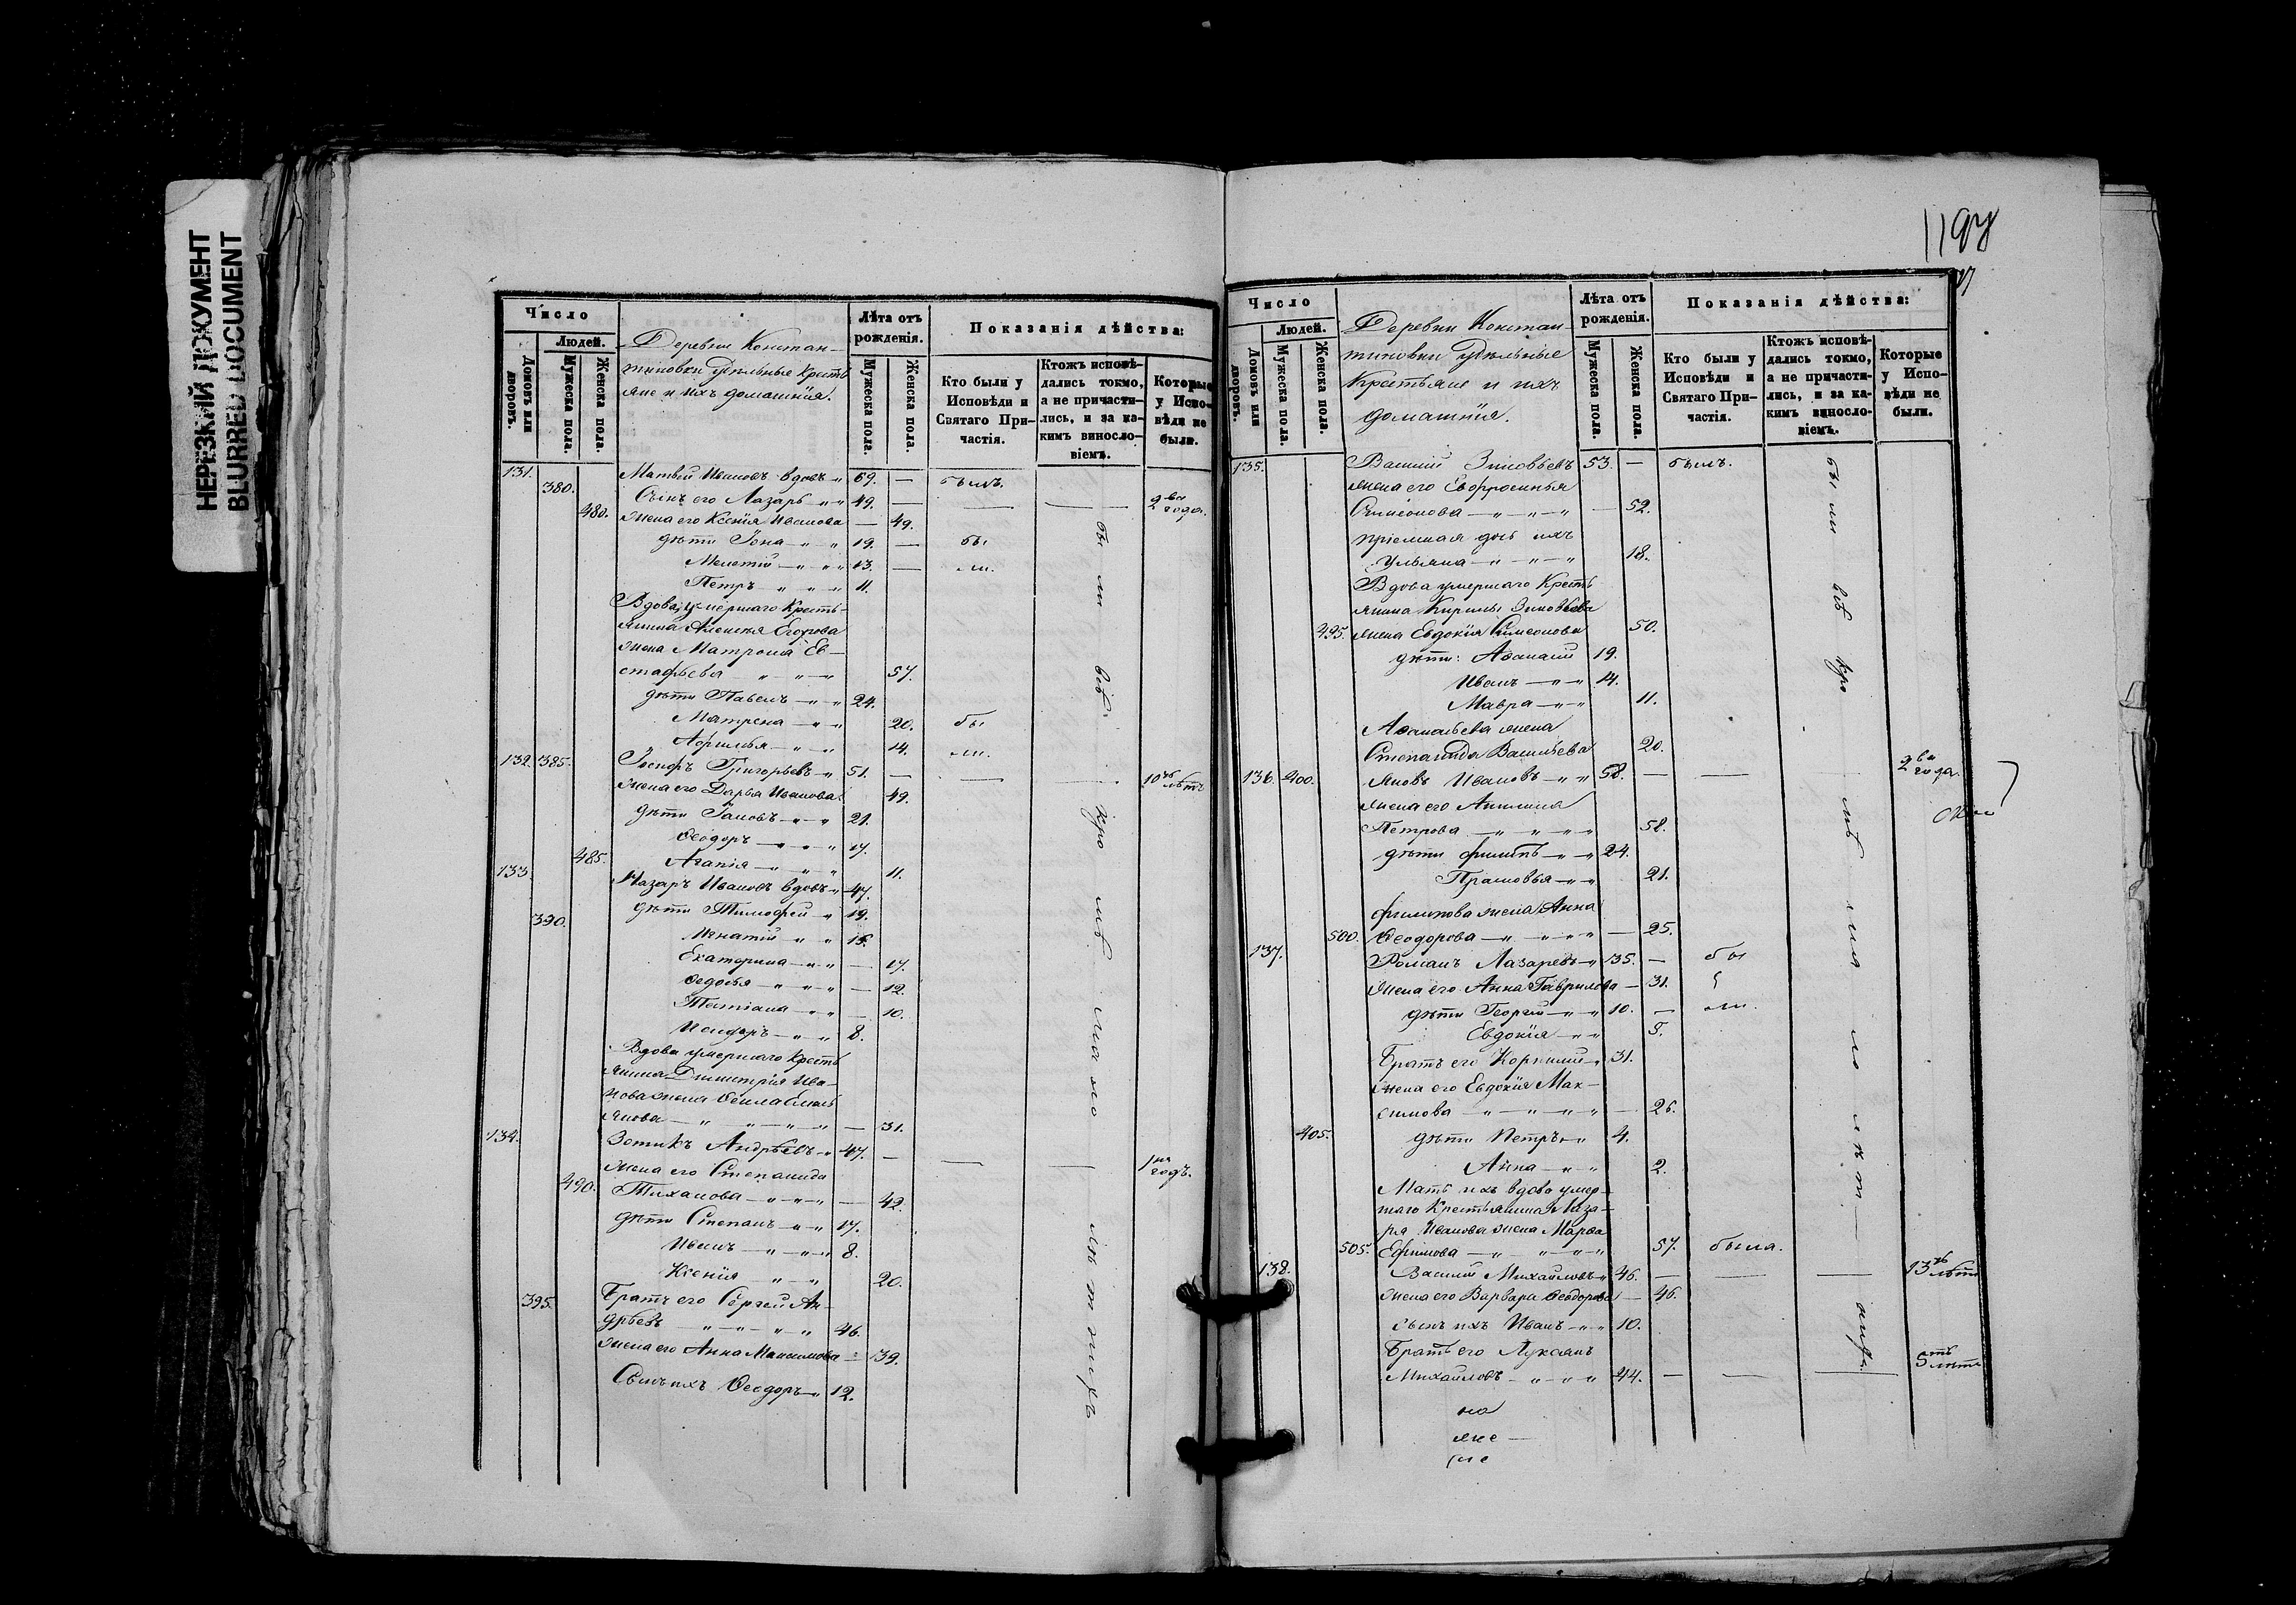 НЕРЕЗКИЙ ДОКУМЕНТ
BLURRED DOCUMENT
Число
Людей.
Домовъ или дворовъ.
Мужеска пола.
Женска пола.
Деревни Констан-
тиновки удѣльные Кресть
яне и ихъ домашнія.
Лѣта отъ рожденія.
Мужеска пола.
Женска пола.
Показанія дѣйства:
Кто были у Исповѣди и Святаго При-частія.
Ктожъ исповѣ-дались токмо, а не причасти-лись, и за ка-кимъ винослo-віемъ.
Которые у Испо-вѣди не были.
131. Матвей Ивановъ вдовъ 69. — былъ.
380. Сынъ его Лазарь 49. — — — 2ва года.
480. Жена его Ксенія Иванова — 49.
дѣти Іона 19. — бы
Мелетій 13. — ли.
Петръ 11.
Вдова умершаго Кресть-
янина Алексея Егорова
жена Матрона Ев-
стафьева 57.
дѣти Павелъ 24.
Матрена 20. бы
14. ли.
132. 385. Іосифъ Григорьевъ 51. — — — 10ть лѣтъ
Жена его Дарья Иванова 49.
дѣти Іаковъ 21.
Ѳеодоръ 17.
485. Агапія 11.
133. Назаръ Ивановъ вдовъ 47.
дѣти Тимофей 19.
390. Игнатій 15.
Екатерина — 17.
Ѳедосья — 12.
Татіана — 10.
Исидоръ 8.
Вдова умершаго Кресть
янина Димитрія Ива-
нова жена Ѳекла
— 31.
134. Зотикъ Андрѣевъ 47. — — — 1нъ годъ.
Жена его Степанида
490. Тиханова — 42.
дѣти Степанъ 17.
Иванъ 8.
Ксенія 20.
395. Братъ его Сергей Ан-
дрѣевъ 46.
Жена его Анна Максимова — 39.
Сынъ ихъ Ѳеодоръ 12.
Число
Людей.
Домовъ или дворовъ.
Мужеска пола.
Женска пола.
Деревни Констан-
тиновки удѣльные
Крестьяне и ихъ
домашнія.
Лѣта отъ рожденія.
Мужеска пола.
Женска пола.
Показанія дѣйства:
Кто были у Исповѣди и Святаго При-частія.
Ктожъ исповѣ-дались токмо, а не причасти-лись, и за ка-кимъ винослo-віемъ.
Которые у Испо-вѣди не были.
135. Василій Зиновьевъ 53. — былъ.
жена его Евфросинья
Симеонова — 52.
пріемная дочь ихъ
Ульяна 18.
Вдова умершаго Кресть
янина Кирилы Зиновьева
495. жена Евдокія Симеонова 50.
дѣти: Аѳанасій 19.
Иванъ 14.
Мавра 11.
Аѳанасьева жена
Степанида Васильева 20.
136. 400. Яковъ Ивановъ 58. — — — 2ва года.
жена его Акилина
Петрова 58.
дѣти Филипъ 24.
Прасковья 21.
Филипова жена Анна
500. Ѳеодорова — 25.
137. Романъ Лазаревъ 35. — бы
Жена его Анна Гаврилова — 31.
дѣти Георгій 10. — ли.
Евдокія 5.
Братъ его Корнилій 31.
Жена его Евдокія Мак-
симова — 26.
405. дѣти Петръ 4.
Анна 2.
Мать ихъ вдова умер-
шаго Крестьянина Лаза-
ря Иванова жена Марѳа
505. Ефимова 57. была.
138. Василій Михайловъ 46. — — — 13ть лѣтъ
Жена его Варвара Ѳеодорова — 46.
Сынъ ихъ Иванъ 10.
Братъ его Лукіанъ
Михайловъ 44. — — — 5ть лѣтъ